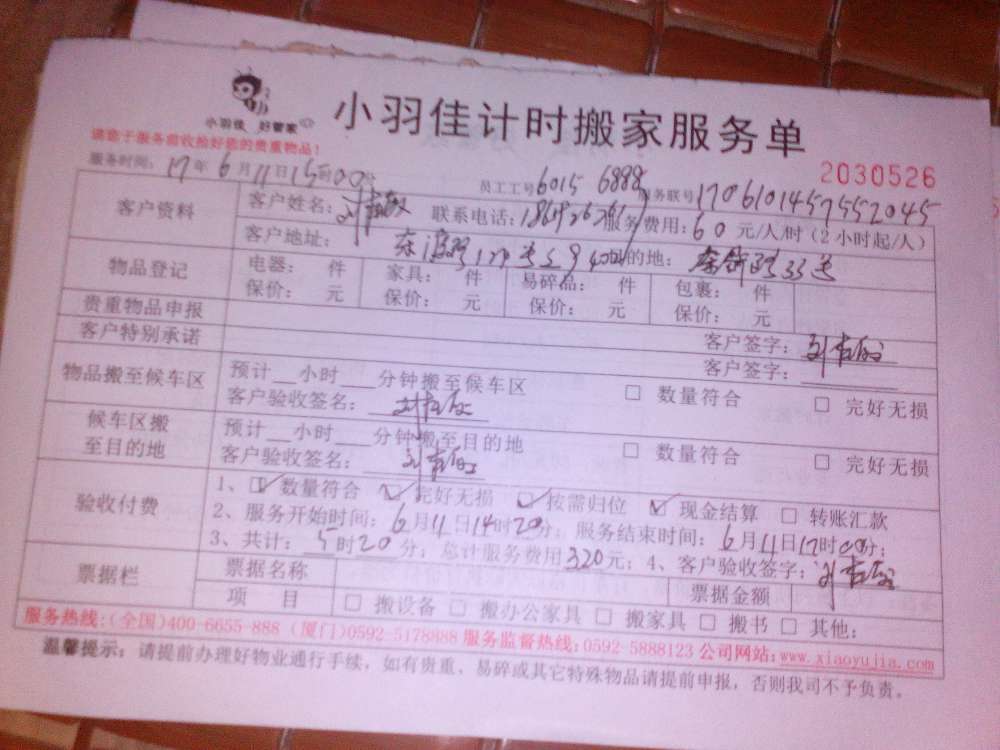 小羽佳计时搬家服务单
小羽佳 好管家
请您于服务前收拾好您的贵重物品!
2030526
服务时间: 17年6月11日15时00分 员工工号6015 6888 服务联号1706101457552045
客户资料 客户姓名: 联系电话: 服务费用: 60 元/人/时 (2小时起/人)
客户地址: 目的地:
物品登记 电器: 件 家具: 件 易碎品: 件 包裹: 件
保价: 元 保价: 元 保价: 元 保价: 元
贵重物品申报 客户签字:
客户特别承诺 客户签字:
物品搬至候车区 预计__小时___分钟搬至候车区 □ 数量符合 □ 完好无损
客户验收签名:
候车区搬至目的地 预计__小时___分钟搬至目的地 □ 数量符合 □ 完好无损
客户验收签名:
验收付费 1、☑ 数量符合 ☑ 完好无损 ☑ 按需归位 ☑ 现金结算 □ 转账汇款
2、服务开始时间: 6月11日14时20分; 服务结束时间: 6月11日17时00分;
3、共计: 5时20分; 总计服务费用320元; 4、客户验收签字:
票据栏 票据名称 票据金额
项 目 □ 搬设备 □ 搬办公家具 □ 搬家具 □ 搬书 □ 其他:
服务热线:(全国)400-6655-888 (厦门)0592-5178888 服务监督热线:0592-5888123 公司网站:www.xiaoyujia.com
温馨提示: 请提前办理好物业通行手续, 如有贵重、易碎或其它特殊物品请提前申报, 否则我司不予负责。